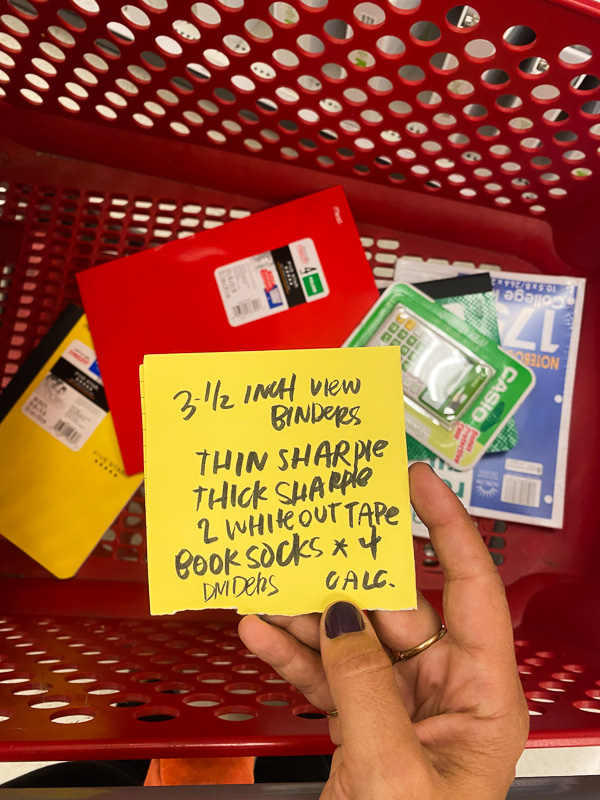 3-1/2 INCH VIEW
BINDERS
THIN SHARPIE
THICK SHARPIE
2 WHITE OUT TAPE
BOOK SOCKS * 4
DIVIDERS CALC.
4
FIVE STAR
CASIO
10.5 x 8
College
NOTEBOOK